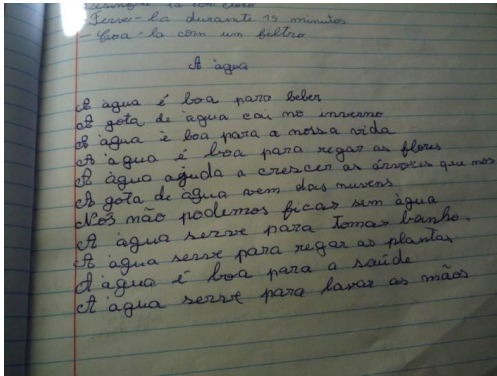 Desinfeta-la com cloro
- Ferve-la durante 15 minutos
- Coa-la com um filtro
A àgua
A àgua é boa para beber
A gota de àgua cai no inverno
A àgua è boa para a nossa vida
A àgua é boa para regar as flores
A àgua ajuda a crescer as árvores que nos
A gota de àgua vem das nuvens
Nós não podemos ficar sem àgua
A àgua serve para tomar banho.
A àgua serve para regar as plantas
A àgua é boa para a saúde
A àgua serve para lavar as mãos